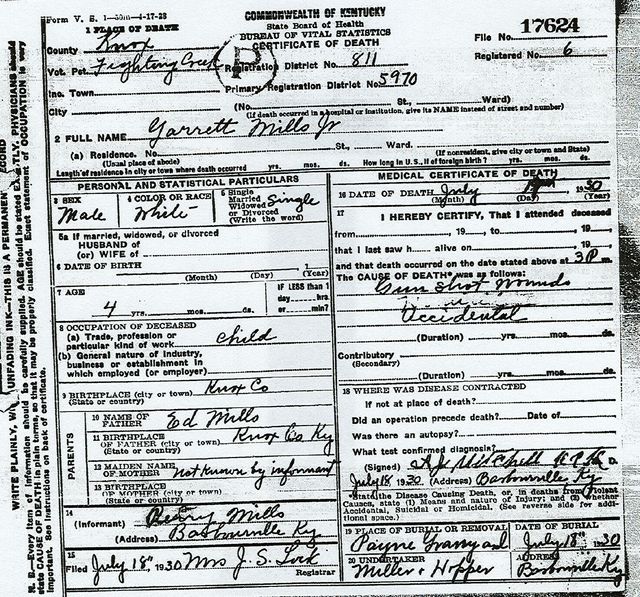 Form V. S. 1-50m-4-17-28
COMMONWEALTH OF KENTUCKY
State Board of Health
BUREAU OF VITAL STATISTICS
CERTIFICATE OF DEATH
File No. 17624
Registered No. 6
1 PLACE OF DEATH
County Knox
Vot. Pct. Fighting Creek
Registration District No. 811
Inc. Town
Primary Registration District No. 5970
City (No. St., Ward)
(If death occurred in a hospital or institution, give its NAME instead of street and number)
2 FULL NAME Garrett Mills Jr
(a) Residence. No. St., Ward.
(Usual place of abode) (If nonresident, give city or town and State)
Length of residence in city or town where death occurred yrs. mos. ds. How long in U. S., if of foreign birth? yrs. mos. ds.
PERSONAL AND STATISTICAL PARTICULARS
3 SEX Male
4 COLOR OR RACE White
5 Single Married Widowed or Divorced (Write the word) Single
5a If married, widowed, or divorced
HUSBAND of
(or) WIFE of
6 DATE OF BIRTH
(Month) (Day) (Year)
7 AGE
4 yrs. mos. ds.
IF LESS than 1 day hrs. or min?
8 OCCUPATION OF DECEASED
(a) Trade, profession or particular kind of work child
(b) General nature of industry,
business or establishment in
which employed (or employer)
9 BIRTHPLACE (city or town) Knox Co
(State or country)
PARENTS
10 NAME OF FATHER Ed Mills
11 BIRTHPLACE OF FATHER (city or town) Knox Co Ky
(State or country)
12 MAIDEN NAME OF MOTHER not known by informant
13 BIRTHPLACE OF MOTHER (city or town)
(State or country)
14
(Informant) Mills
(Address) Barbourville Ky
15
Filed July 18th, 1930 Mrs J. S. Lock
Registrar
MEDICAL CERTIFICATE OF DEATH
16 DATE OF DEATH July 1930
(Month) (Day) (Year)
17 I HEREBY CERTIFY, That I attended deceased
from , 19 , to , 19
that I last saw h alive on , 19
and that death occurred on the date stated above at 3 P m.
The CAUSE OF DEATH* was as follows:
Gun shot wounds
Accidental
(Duration) yrs. mos. ds.
Contributory
(Secondary)
(Duration) yrs. mos. ds.
18 WHERE WAS DISEASE CONTRACTED
If not at place of death?
Did an operation precede death? Date of
Was there an autopsy?
What test confirmed diagnosis?
(Signed) Mitchell
July 18 1930 (Address) Barbourville Ky
*State the Disease Causing Death, or, in deaths from Violent
Causes, state (1) Means and nature of Injury; and (2) whether
Accidental, Suicidal or Homicidal. (See reverse side for addi-
tional space.)
19 PLACE OF BURIAL OR REMOVAL Payne Graveyard
DATE OF BURIAL July 18th 1930
20 UNDERTAKER Miller & Hopper
ADDRESS Barbourville Ky
WRITE PLAINLY, WITH UNFADING INK—THIS IS A PERMANENT RECORD
N. B.—Every item of information should be carefully supplied. AGE should be stated EXACTLY. PHYSICIANS should
state CAUSE OF DEATH in plain terms, so that it may be properly classified. Exact statement of OCCUPATION is very
important. See instructions on back of certificate.